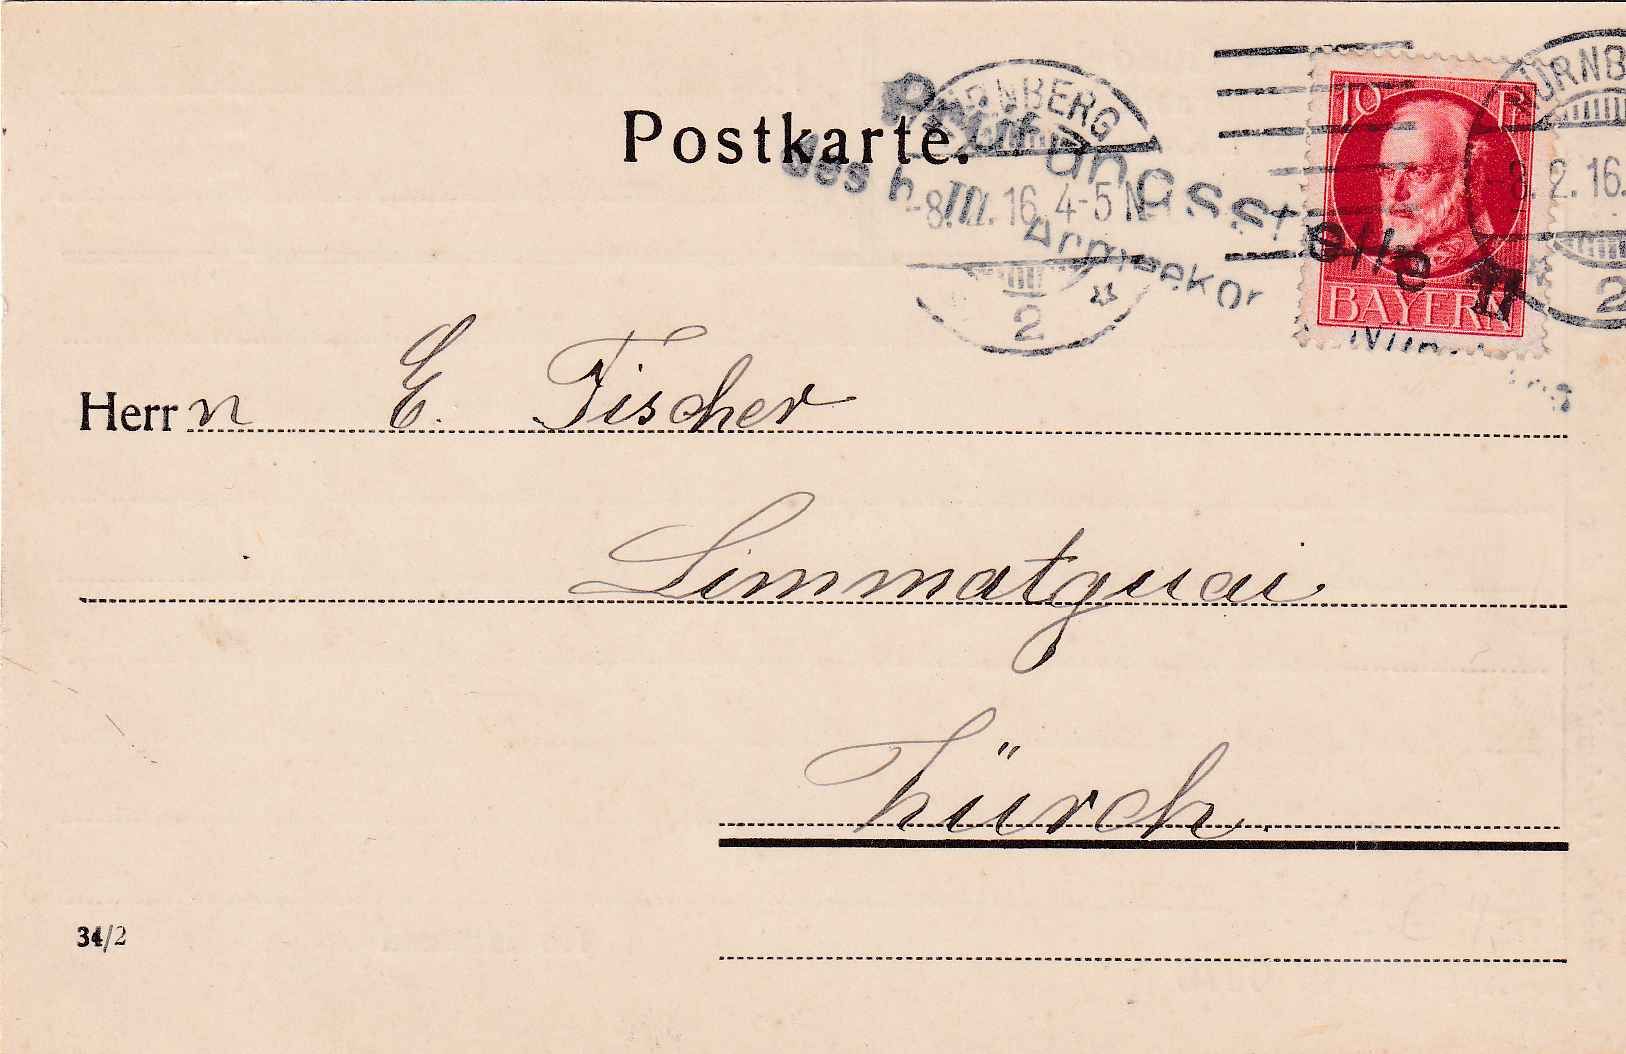 Postkarte.
NÜRNBERG
-8. III. 16. 4-5 N
2
Prüfungsstelle II
des
Armeekor
10 P
BAYERN
NÜRNB
8. 2. 16.
2
Herrn E. Fischer
Limmatquai
Zürch.
34/2